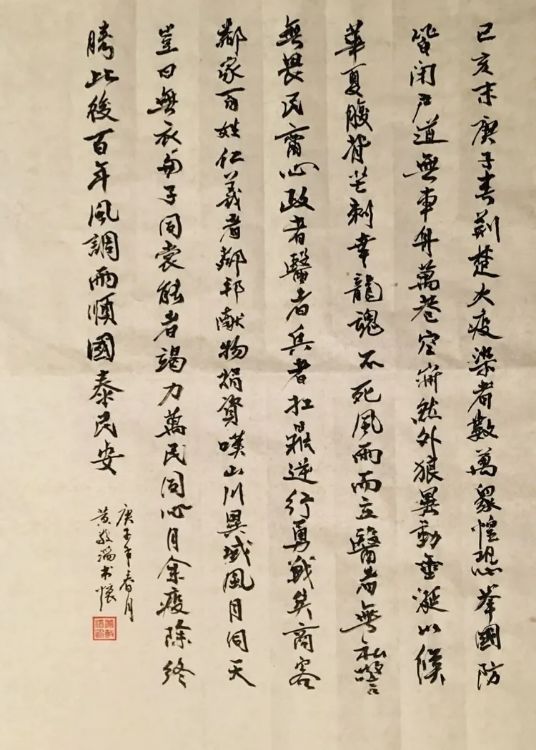 己亥末庚子春荆楚大疫染者數萬衆惶恐举國防
皆闭户道無車舟萬巷空寂然外狼異動垂涎以候
華夏腹背芒刺幸龍魂不死風雨而立醫者無私警
無畏民齊心政者醫者兵者扛鼎逆行勇戰矣商客
鄰家百姓仁義者鄰邦献物捐資嘆山川異域風月同天
豈曰無衣与子同裳能者竭力萬民同心月余疫除终
勝此後百年風調雨順國泰民安
庚子年春月
黄敬瑞书怀